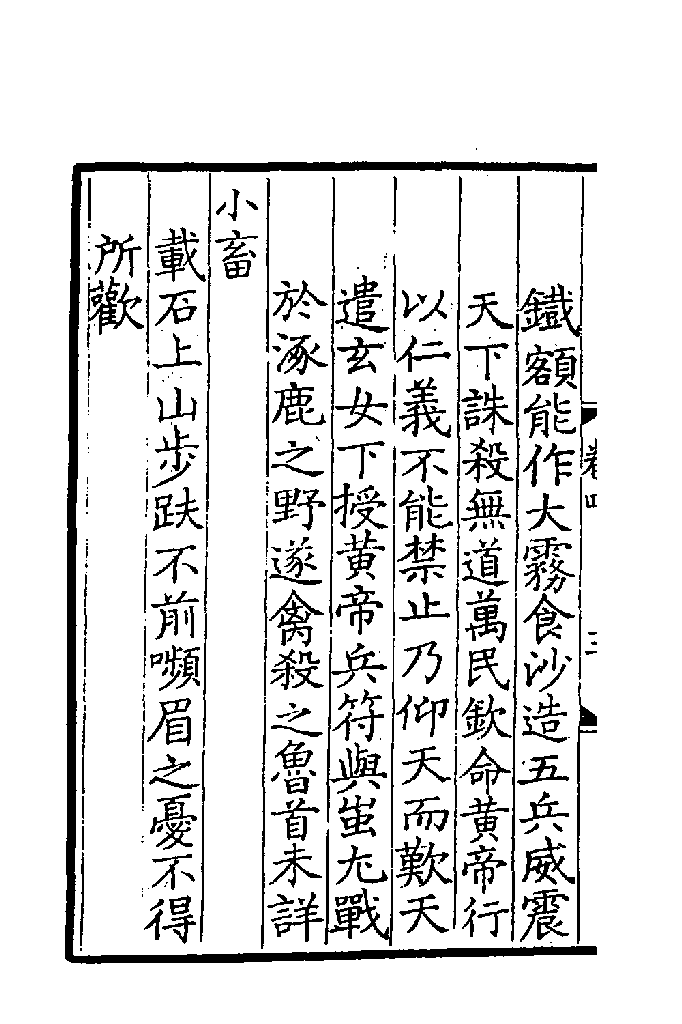 鐵額能作大霧食沙造五兵威震
天下誅殺無道萬民欽命黃帝行
以仁義不能禁止乃仰天而歎天
遣玄女下授黃帝兵符與蚩尤戰
於涿鹿之野遂禽殺之魯首未詳
小畜
載石上山步趺不前嚬眉之憂不得
所歡